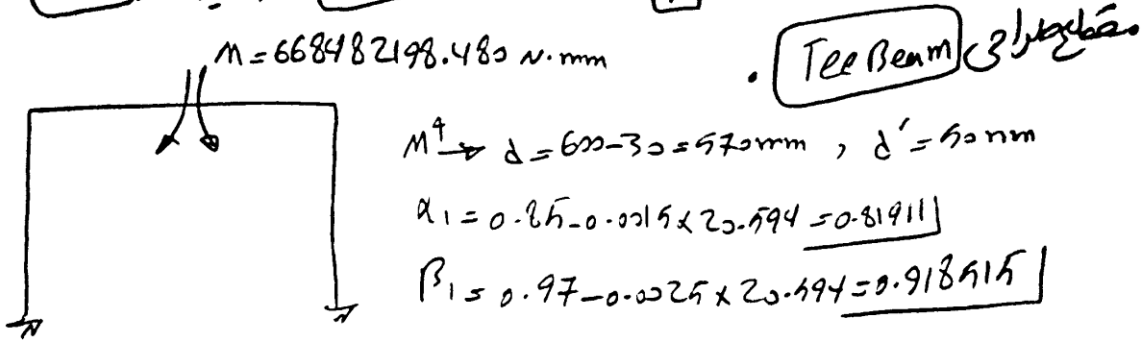 M = 668482198.480 N.mm
مقطع طراحی Tee Beam .
M⁺ → d = 600-30 = 570mm , d′ = 50 mm
α1 = 0.85-0.0015×20.594 = 0.81911
β1 = 0.97-0.0025×20.594 = 0.918515